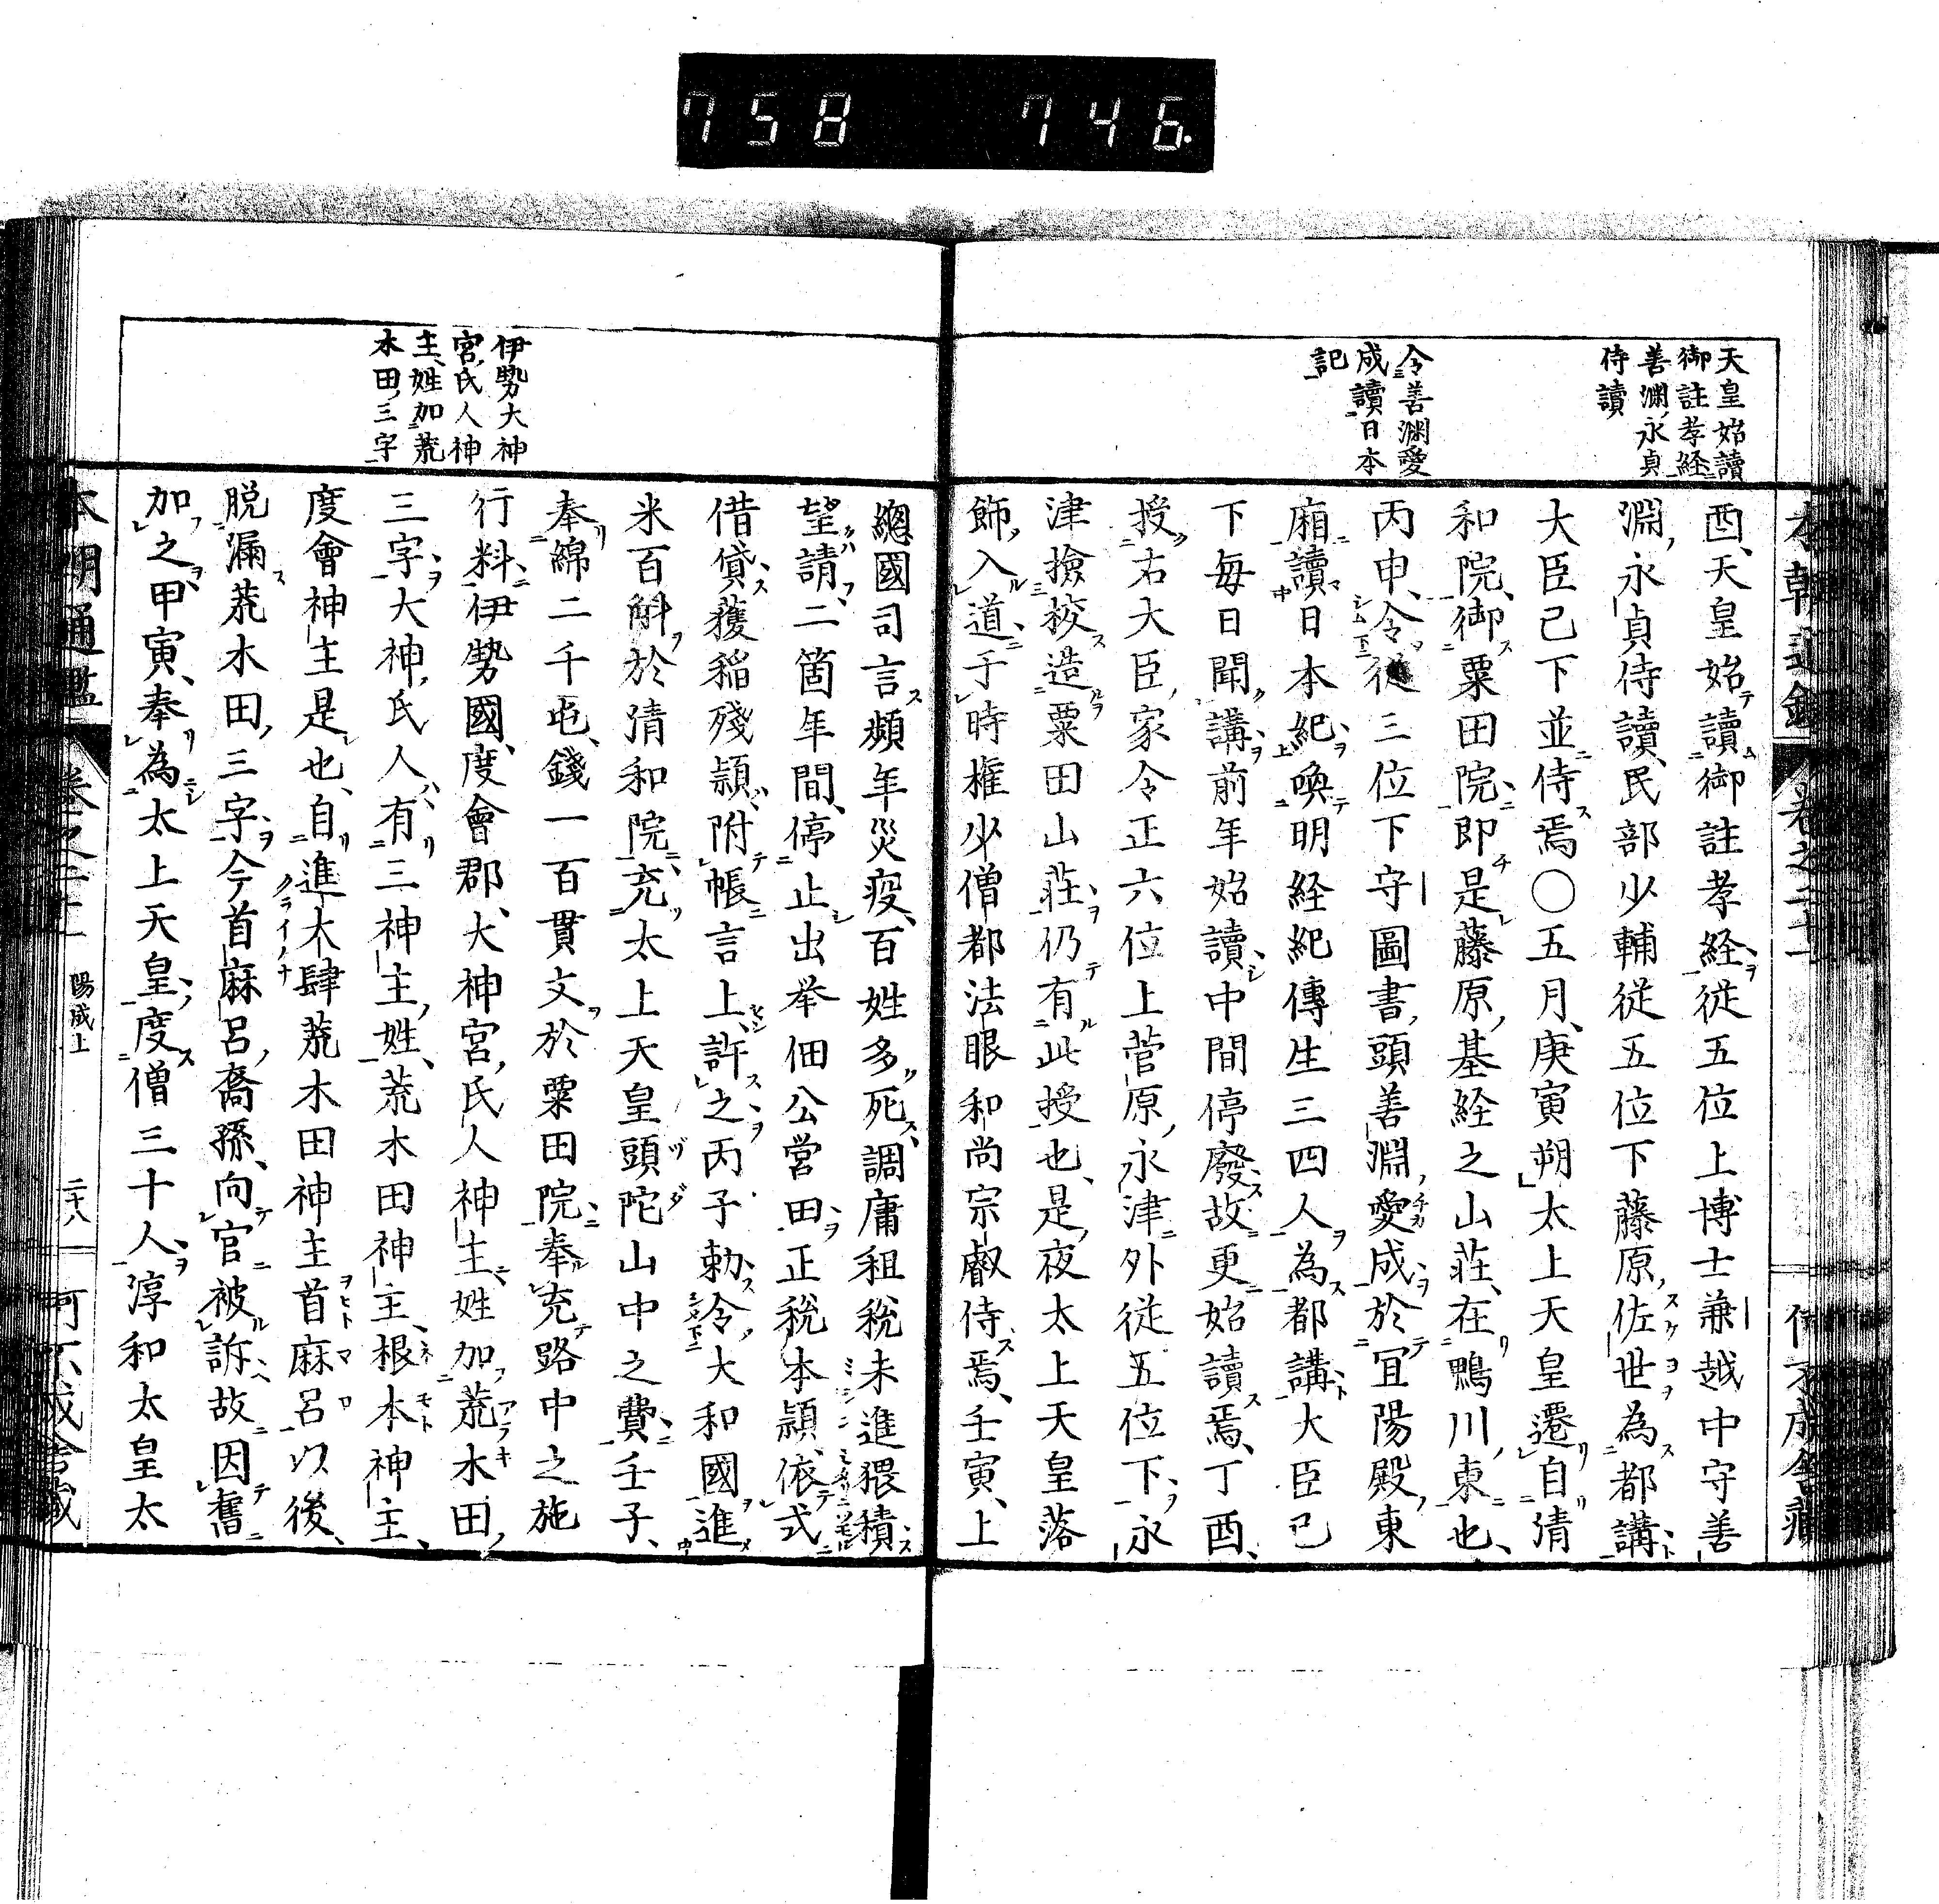 758 746
天皇始讀
御註孝経
善淵永貞
侍讀
令善淵愛
成讀日本
記
酉、天皇始讀御註孝経、従五位上博士兼越中守善
淵永貞侍讀、民部少輔従五位下藤原佐世為都講、
大臣已下並侍焉〇五月、庚寅朔太上天皇遷自清
和院、御粟田院、即是藤原基経之山荘、在鴨川東也、
丙申、令従三位下守圖書頭善淵愛成於冝陽殿東
廂讀日本紀、喚明経紀傳生三四人為都講、大臣已
下毎日聞講、前年始讀、中間停廢、故更始讀焉、丁酉、
授右大臣家令正六位上菅原永津外従五位下、永
津撿挍造粟田山荘、仍有此授也、是夜太上天皇落
飾入道、于時權少僧都法眼和尚宗叡侍焉、壬寅、上
總國司言、頻年災疫、百姓多死、調庸租税未進猥積、
望請、二箇年間、停止出举佃公営田、正税本頴、依式
借貸、蓰稲殘頴、附帳言上、許之、丙子勅、令大和國進
米百斛於清和院、充太上天皇頭陀山中之費、壬子、
奉綿二千屯、錢一百貫文於粟田院、奉充路中之施
行料、伊勢國、度會郡、大神宮氏人神主、姓加荒木田
三字、大神氏人、有三神主、姓、荒木田神主、根本神主、
度會神主是也、自進大肆荒木田神主首麻呂以後、
脱漏荒木田三字、今首麻呂裔孫、向官被訴、故因舊
加之、甲寅、奉為太上天皇、度僧三十人、淳和太皇太
伊勢大神
宮氏人神
主、姓加荒
木田三字
本朝通鑑 巻之二十 陽成上 二十八